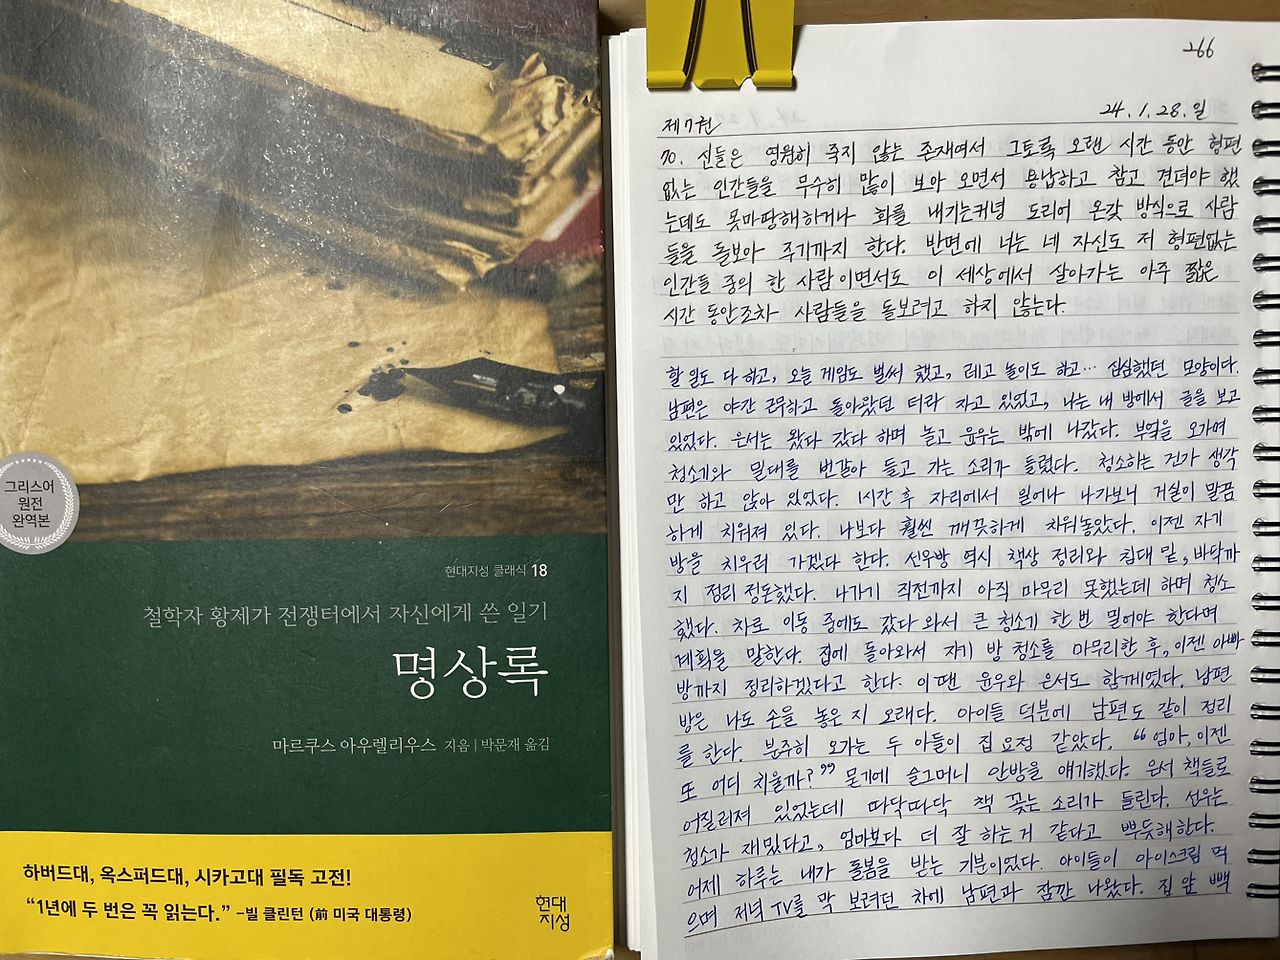 그리스어
원전
완역본
현대지성 클래식 18
철학자 황제가 전쟁터에서 자신에게 쓴 일기
명상록
마르쿠스 아우렐리우스 지음 | 박문재 옮김
하버드대, 옥스퍼드대, 시카고대 필독 고전!
“1년에 두 번은 꼭 읽는다.” -빌 클린턴 (前 미국 대통령)
현대
지성
266
24. 1. 28. 일
제7권
70. 신들은 영원히 죽지 않는 존재여서 그토록 오랜 시간 동안 형편
없는 인간들을 무수히 많이 보아 오면서 용납하고 참고 견뎌야 했
는데도 못마땅해하거나 화를 내기는커녕 도리어 온갖 방식으로 사람
들을 돌보아 주기까지 한다. 반면에 너는 네 자신도 저 형편없는
인간들 중의 한 사람이면서도 이 세상에서 살아가는 아주 짧은
시간 동안조차 사람들을 돌보려고 하지 않는다.
할 일도 다 하고, 오늘 게임도 벌써 했고, 레고 놀이도 하고… 심심했던 모양이다.
남편은 야간 근무하고 돌아왔던 터라 자고 있었고, 나는 내 방에서 글을 보고
있었다. 은서는 왔다 갔다 하며 놀고 윤우는 밖에 나갔다. 부엌을 오가며
청소기와 밀대를 번갈아 들고 가는 소리가 들렸다. 청소하는 건가 생각
만 하고 앉아 있었다. 1시간 후 자리에서 일어나 나가보니 거실이 말끔
하게 치워져 있다. 나보다 훨씬 깨끗하게 치워놓았다. 이젠 자기
방을 치우러 가겠다 한다. 선우방 역시 책상 정리와 침대 밑, 바닥까
지 정리 정돈했다. 나가기 직전까지 아직 마무리 못했는데 하며 청소
했다. 차로 이동 중에도 갔다 와서 큰 청소기 한 번 밀어야 한다며
계획을 말한다. 집에 돌아와서 자기 방 청소를 마무리한 후, 이젠 아빠
방까지 정리하겠다고 한다. 이땐 윤우와 은서도 함께였다. 남편
방은 나도 손을 놓은 지 오래다. 아이들 덕분에 남편도 같이 정리
를 한다. 분주히 오가는 두 아들이 집 요정 같았다. “엄마, 이젠
또 어디 치울까?” 묻기에 슬그머니 안방을 얘기했다. 은서 책들로
어질러져 있었는데 따닥따닥 책 꽂는 소리가 들린다. 선우는
청소가 재밌다고, 엄마보다 더 잘 하는 거 같다고 뿌듯해한다.
어제 하루는 내가 돌봄을 받는 기분이었다. 아이들이 아이스크림 먹
으며 저녁 TV를 막 보려던 차에 남편과 잠깐 나왔다. 집 앞 빽